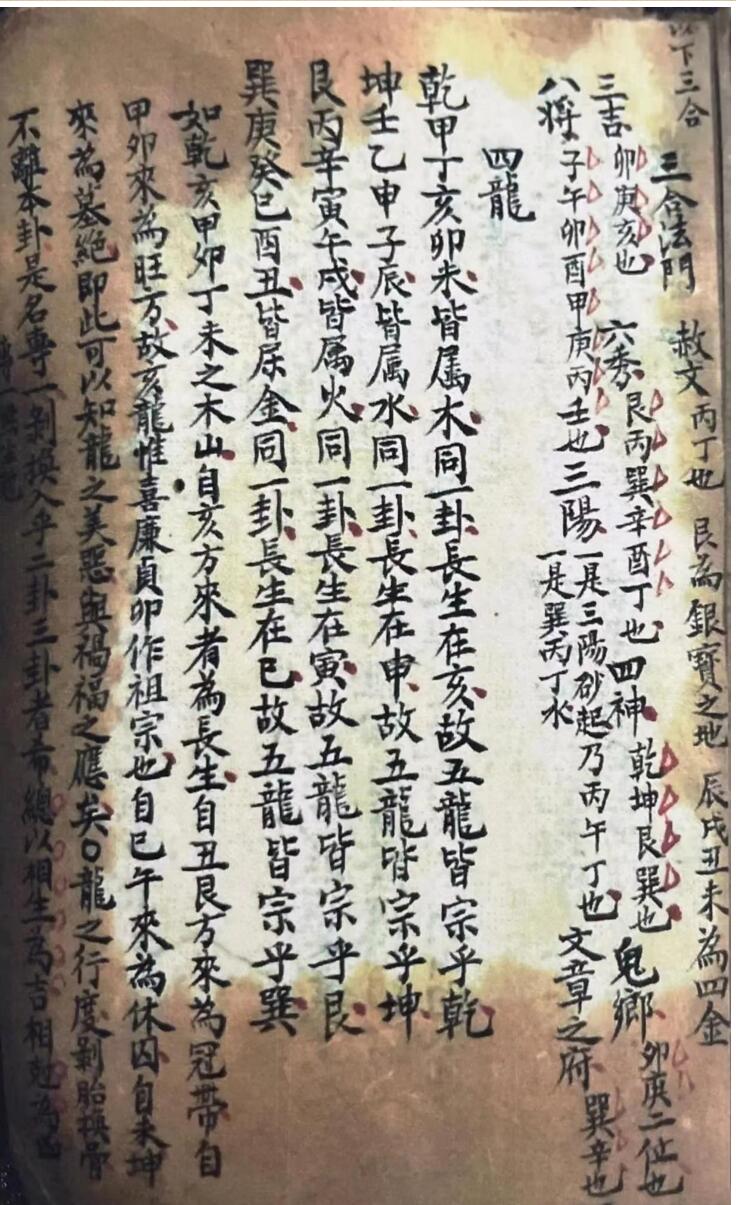 以下三合
三合法門　赦文 丙丁也　艮為銀寶之地　辰戌丑未為四金
三吉 卯庚亥也　六秀 艮丙巽辛酉丁也 四神 乾坤艮巽也 鬼鄉 卯庚二位也
八將 子午卯酉甲庚丙壬也 三陽 一是三陽砂起乃丙午丁也 一是巽丙丁水 文章之府 巽辛也
四龍
乾甲丁亥卯未皆属木同一卦長生在亥故五龍皆宗乎乾
坤壬乙申子辰皆属水同一卦長生在申故五龍皆宗乎坤
艮丙辛寅午戌皆属火同一卦長生在寅故五龍皆宗乎艮
巽庚癸巳酉丑皆属金同一卦長生在巳故五龍皆宗乎巽
如乾亥甲卯丁未之木山自亥方來者為長生自丑艮方來為冠帶自
甲卯來為旺方故亥龍惟喜廉貞卯作祖宗也自巳午來為休囚自未坤
來為墓絕即此可以知龍之美惡與禍福之應矣○龍之行度剝胎換骨
不離本卦是名專一剝換入乎二卦三卦者希總以相生為吉相尅為凶